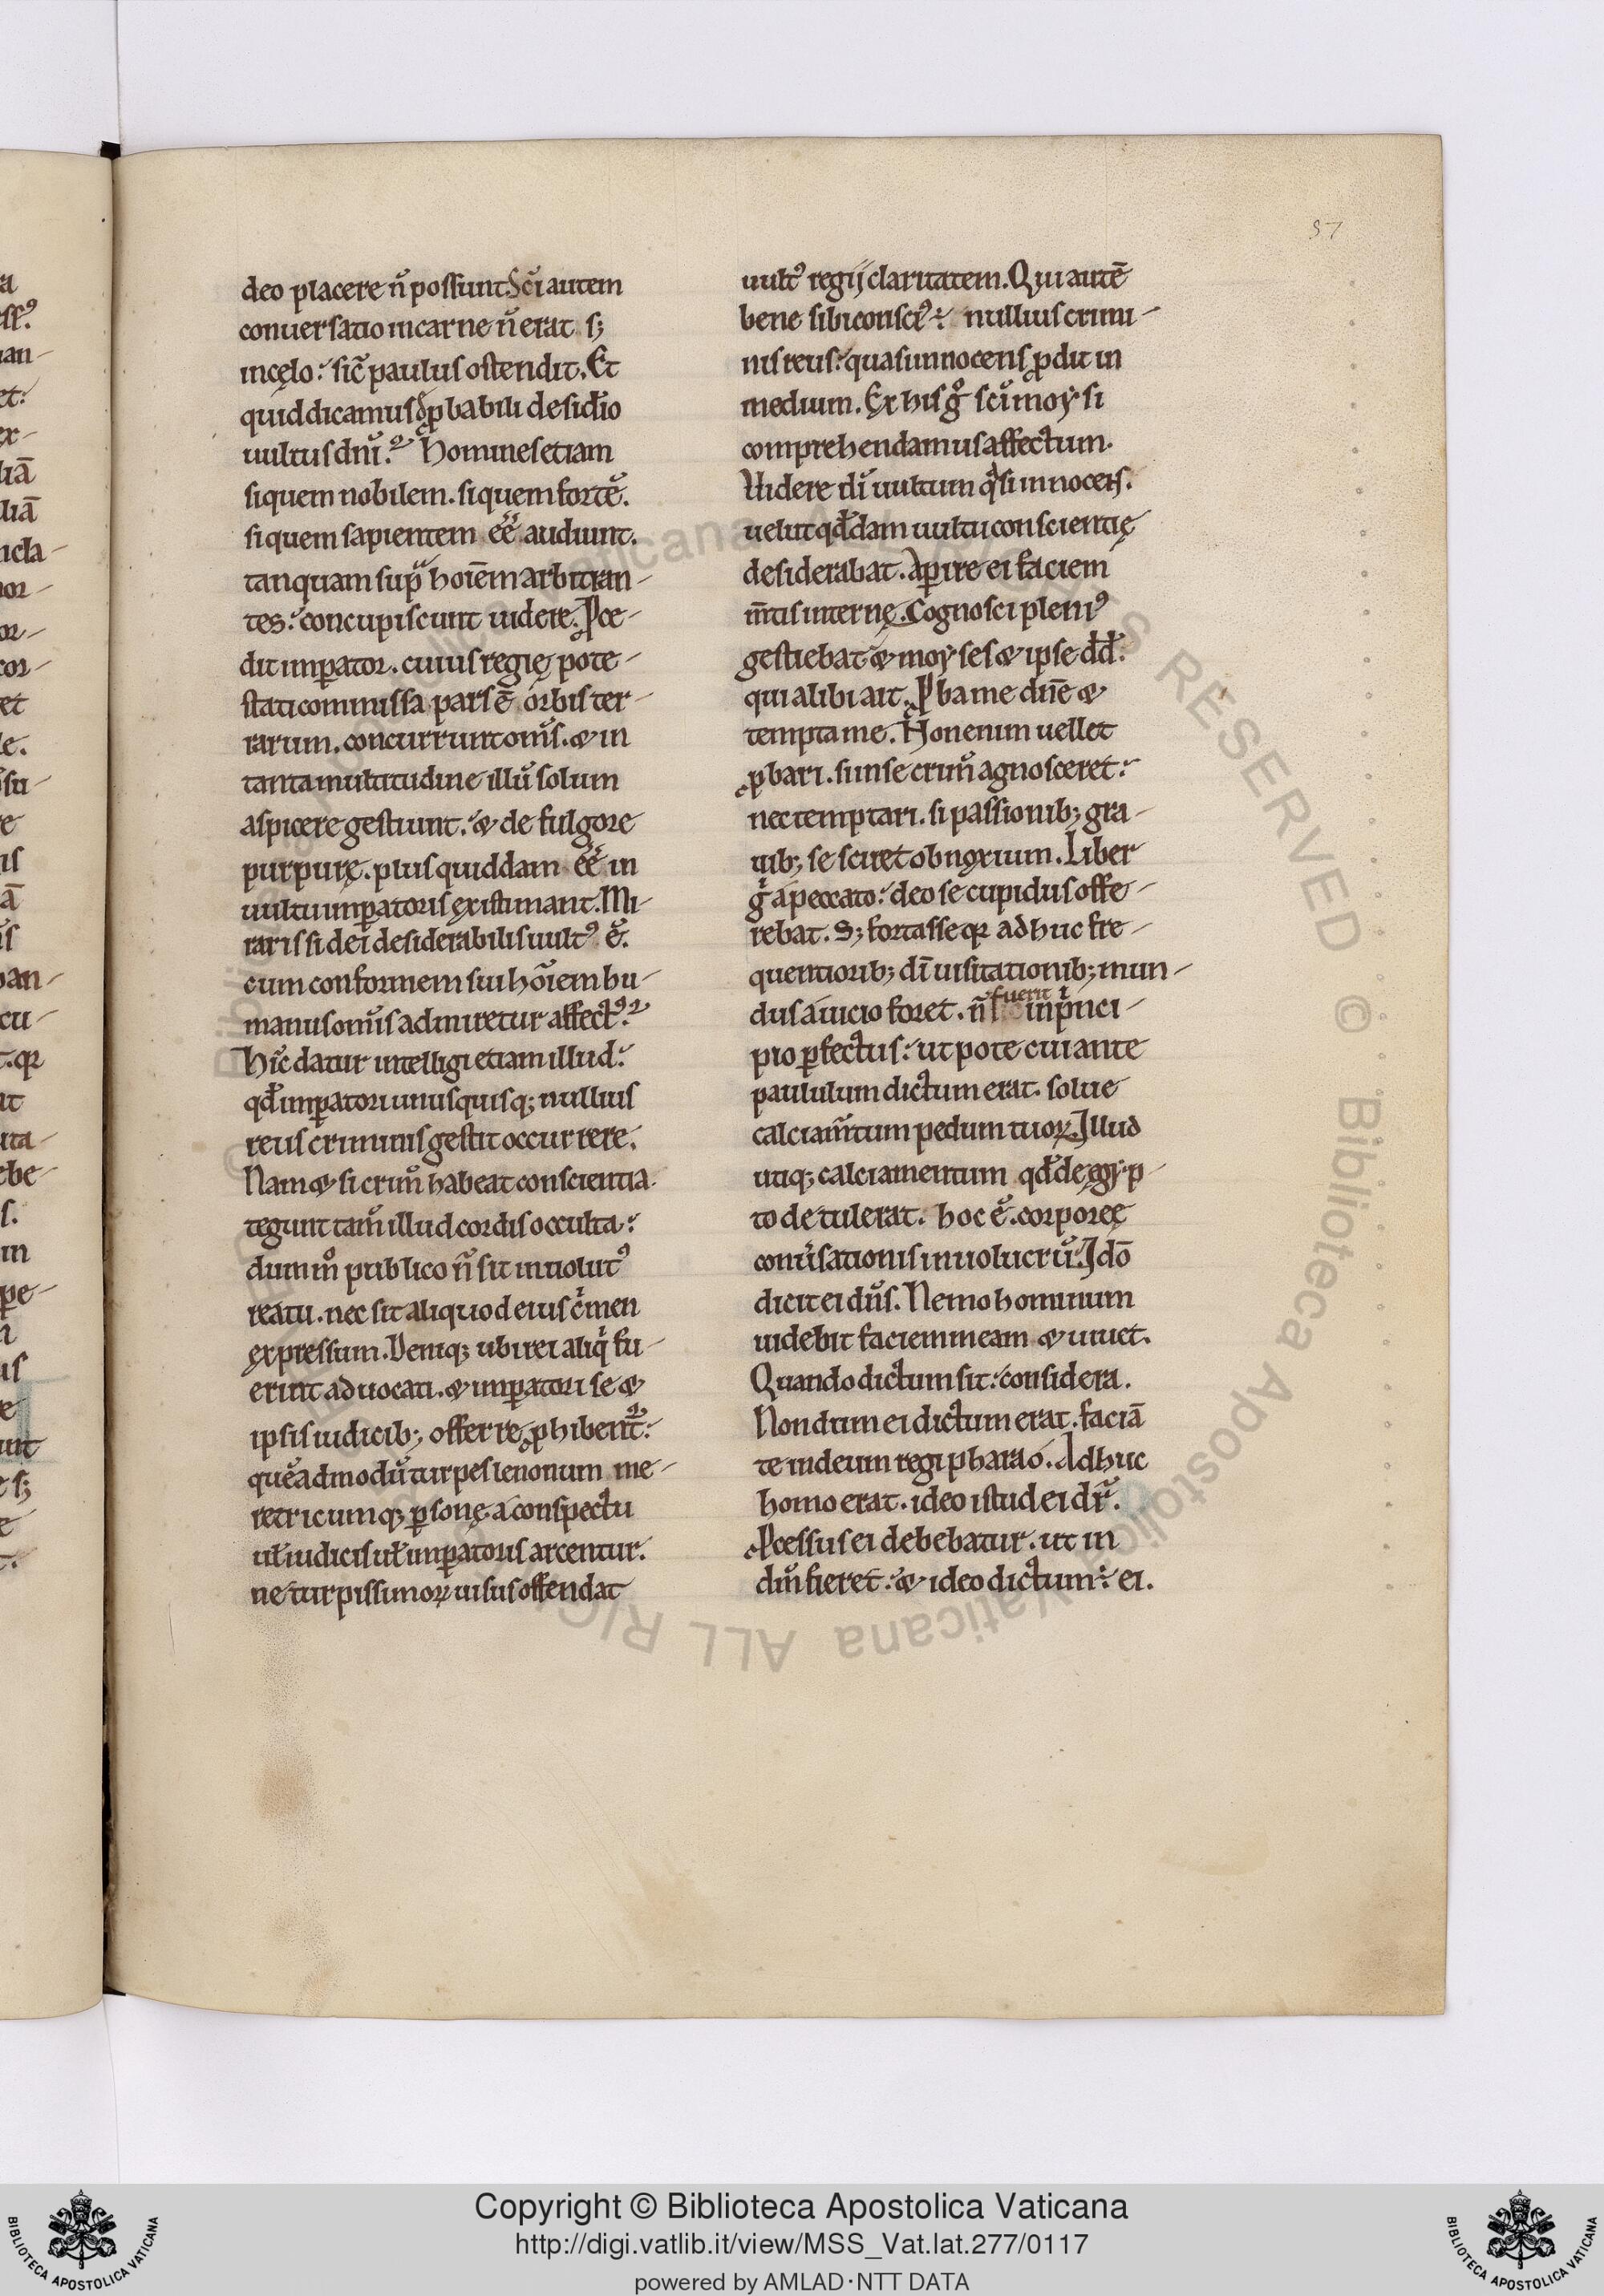 57
deo placere n̄ possunt. Sc̄i autem
conuersatio in carne n̄ erat s;
in cęlo: sic̄ paulus ostendit. Et
quid dicamus de ꝓbabili desiđio
uultus dn̄i? Homines etiam
siquem nobilem. siquem fortē.
siquem sapientem eē audiunt.
tanquam sup̄ hoiēm arbitran-
tes: concupiscunt uidere. Ꝓce-
dit imꝑator. cuius regię pote-
stati commissa pars ē orbis ter-
rarum. concurrunt om̄s. & in
tanta multitudine illū solum
aspicere gestiunt: & de fulgore
purpurę. plus quiddam eē in
uultu imꝑatoris ęxistimant. Mi-
raris si dei desiderabilis uultꝰ ē.
cum conformem sui hoīem hu-
manus om̄is admiretur affectꝰ?
Hic̄ datur intelligi etiam illud:
qđ imꝑatori unusquisq; nullius
reus criminis gestit occurrere.
Nam & si crim̄ habeat conscientia.
tegunt tam̄ illud cordis occulta:
dum m̊ publico n̄ sit inuolutꝰ
reatu. nec sit aliquod eius c̄men
ęxpressum. Deniq; ubi rei aliq̄ fu-
erint aduocati. & imꝑatori se &
ipsis iudicib; offerre ꝓhibent̄:
quēadmodū turpes lenonum me-
retricumq; ꝑsonę a conspectu
uł iudicis uł imꝑatoris arcentur.
ne turpissimoꝝ uisus offendat
uultꝰ regij claritatem. Qui autē
bene sibi consciꝰ ÷ nullius crimi-
nis reus: quasi innocens ꝓdit in
medium. Ex his g̊ sc̄i moysi
comprehendamus affectum.
Uidere dī uultum q̄si innocens.
uelut qđdam uultu conscientię
desiderabat. Aꝑire ei faciem
m̄tis internę. Cognosci pleniꝰ
gestiebat & moyses & ipse dđ.
qui alibi ait. Ꝓba me dn̄e &
tempta me. Non enim uellet
ꝓbari. si in se crim̄ agnosceret:
nec temptari. si passionib; gra-
uib; se sciret obnoxium. Liber
g̊ a peccato: deo se cupidus offe-
rebat. S; fortasse qꝛ adhuc fre-
quentiorib; dī uisitationib; mun-
dus a uicio foret. n̄
fuerit ī
in p̄nci-
pio ꝑfectus: utpote cui ante
paululum dictum erat. solue
calciam̄tum pedum tuoꝝ. Illud
utiq; calciamentum qđ de ęgyp-
to detulerat. hoc ē. corporeę
conūsationis inuolucrū. Idō
dicit ei dn̄s. Nemo hominum
uidebit faciem meam & uiuet.
Quando dictum sit: considera.
Nondum ei dictum erat. faciā
te in deum regi pharao. Adhuc
homo erat. ideo istud ei dr̄.
Ꝓcessus ei debebatur. ut in
dm̄ fieret: & ideo dictum ÷ ei.
Copyright © Biblioteca Apostolica Vaticana
http://digi.vatlib.it/view/MSS_Vat.lat.277/0117
powered by AMLAD·NTT DATA
BIBLIOTECA APOSTOLICA VATICANA
BIBLIOTECA APOSTOLICA VATICANA